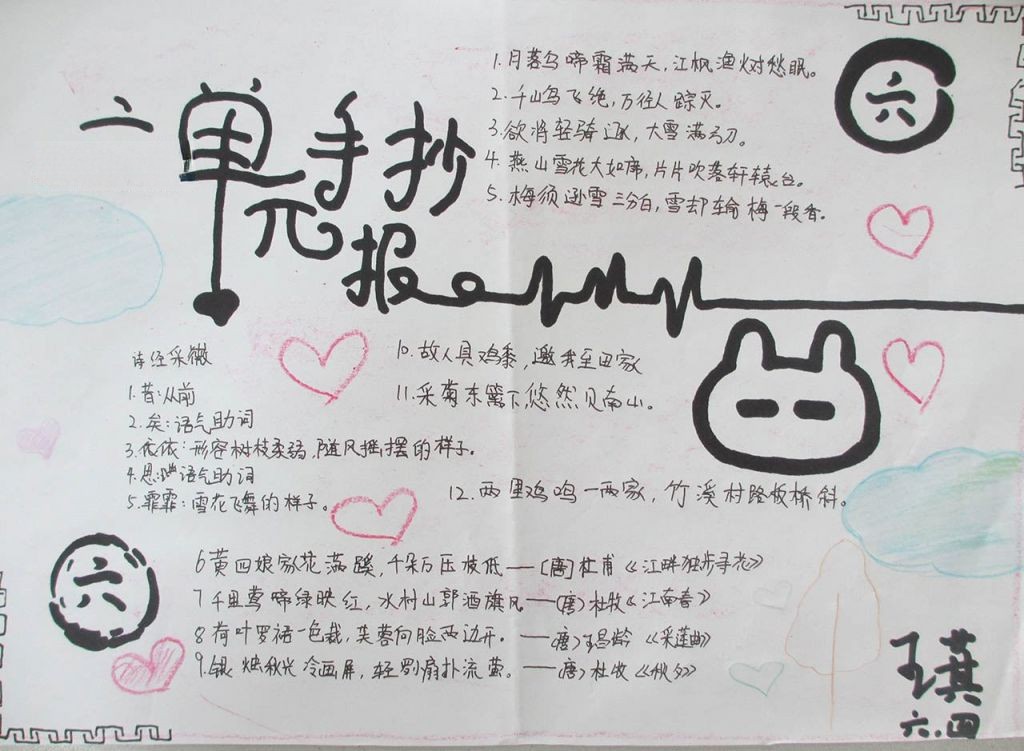 六单元手抄报
六
1.月落乌啼霜满天,江枫渔火对愁眠。
2.千山鸟飞绝,万径人踪灭。
3.欲将轻骑逐,大雪满弓刀。
4.燕山雪花大如席,片片吹落轩辕台。
5.梅须逊雪三分白,雪却输梅一段香。
诗经采薇
1.昔:从前
2.矣:语气助词
3.依依:形容树枝柔弱,随风摇摆的样子。
4.思:语气助词
5.霏霏:雪花飞舞的样子。
10.故人具鸡黍,邀我至田家
11.采菊东篱下,悠然见南山。
12.两里鸡鸣一两家,竹溪村路板桥斜。
六
6黄四娘家花满蹊,千朵万压枝低—[唐]杜甫《江畔独步寻花》
7千里莺啼绿映红,水村山郭酒旗风—(唐)杜牧《江南春》
8荷叶罗裙一色裁,芙蓉向脸两边开。—唐)王昌龄《采莲曲》
9.银烛秋光冷画屏,轻罗扇扑流萤。——唐)杜牧《秋夕》
王萁
六.四